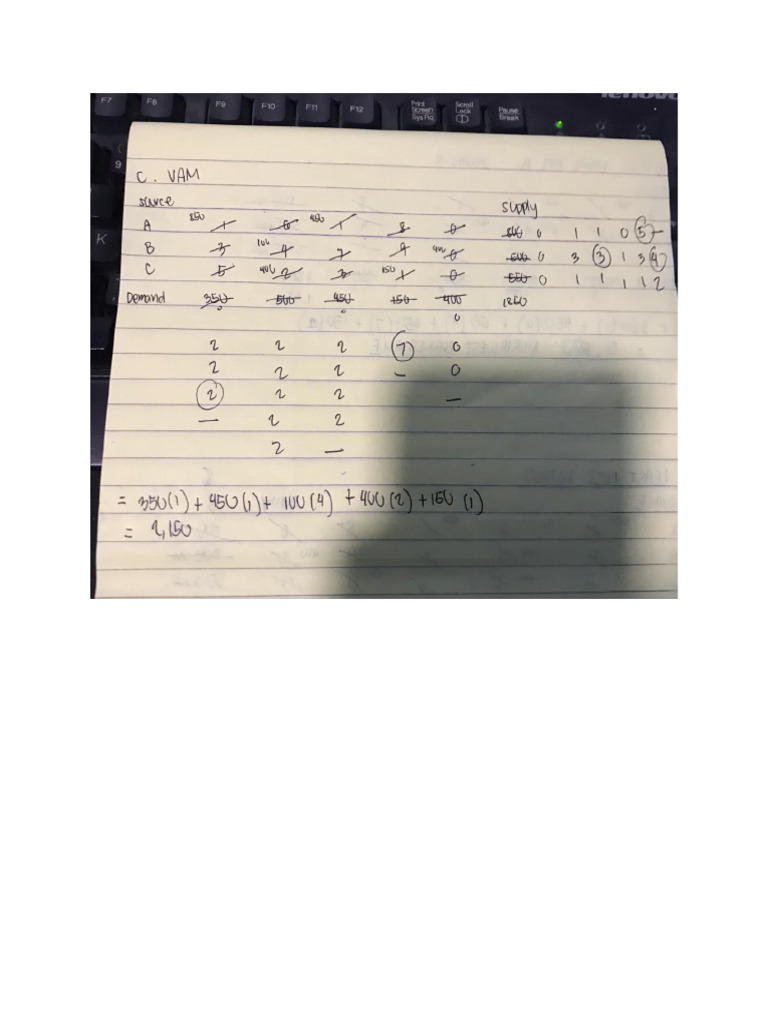 F7 F8 F9 F10 F11 F12 Print Screen SysRq Scroll Lock Pause Break
lenovo
9
K
C. VAM
source supply
A 350 1 6 450 1 8 0 800 0 1 1 0 5 —
B 3 100 4 7 9 400 0 500 0 3 3 1 3 4
C 5 400 2 3 150 1 0 550 0 1 1 1 1 2
Demand 350 500 450 150 400 1850
0 0 0
2 2 2 7 0
2 2 2 — 0
2 2 2 —
— 2 2
2 —
= 350(1) + 450(1) + 100(4) + 400(2) + 150(1)
= 2,150